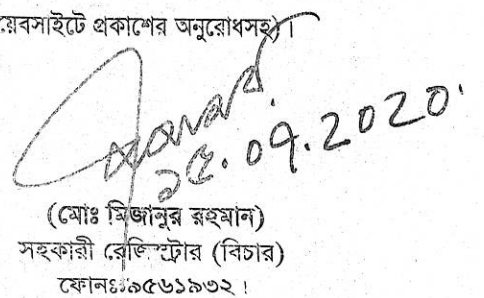 য়েবসাইটে প্রকাশের অনুরোধসহ)।
১৫.০৭.2020
(মোঃ মিজানুর রহমান)
সহকারী রেজিস্ট্রার (বিচার)
ফোনঃ৯৫৬১৯৩২।